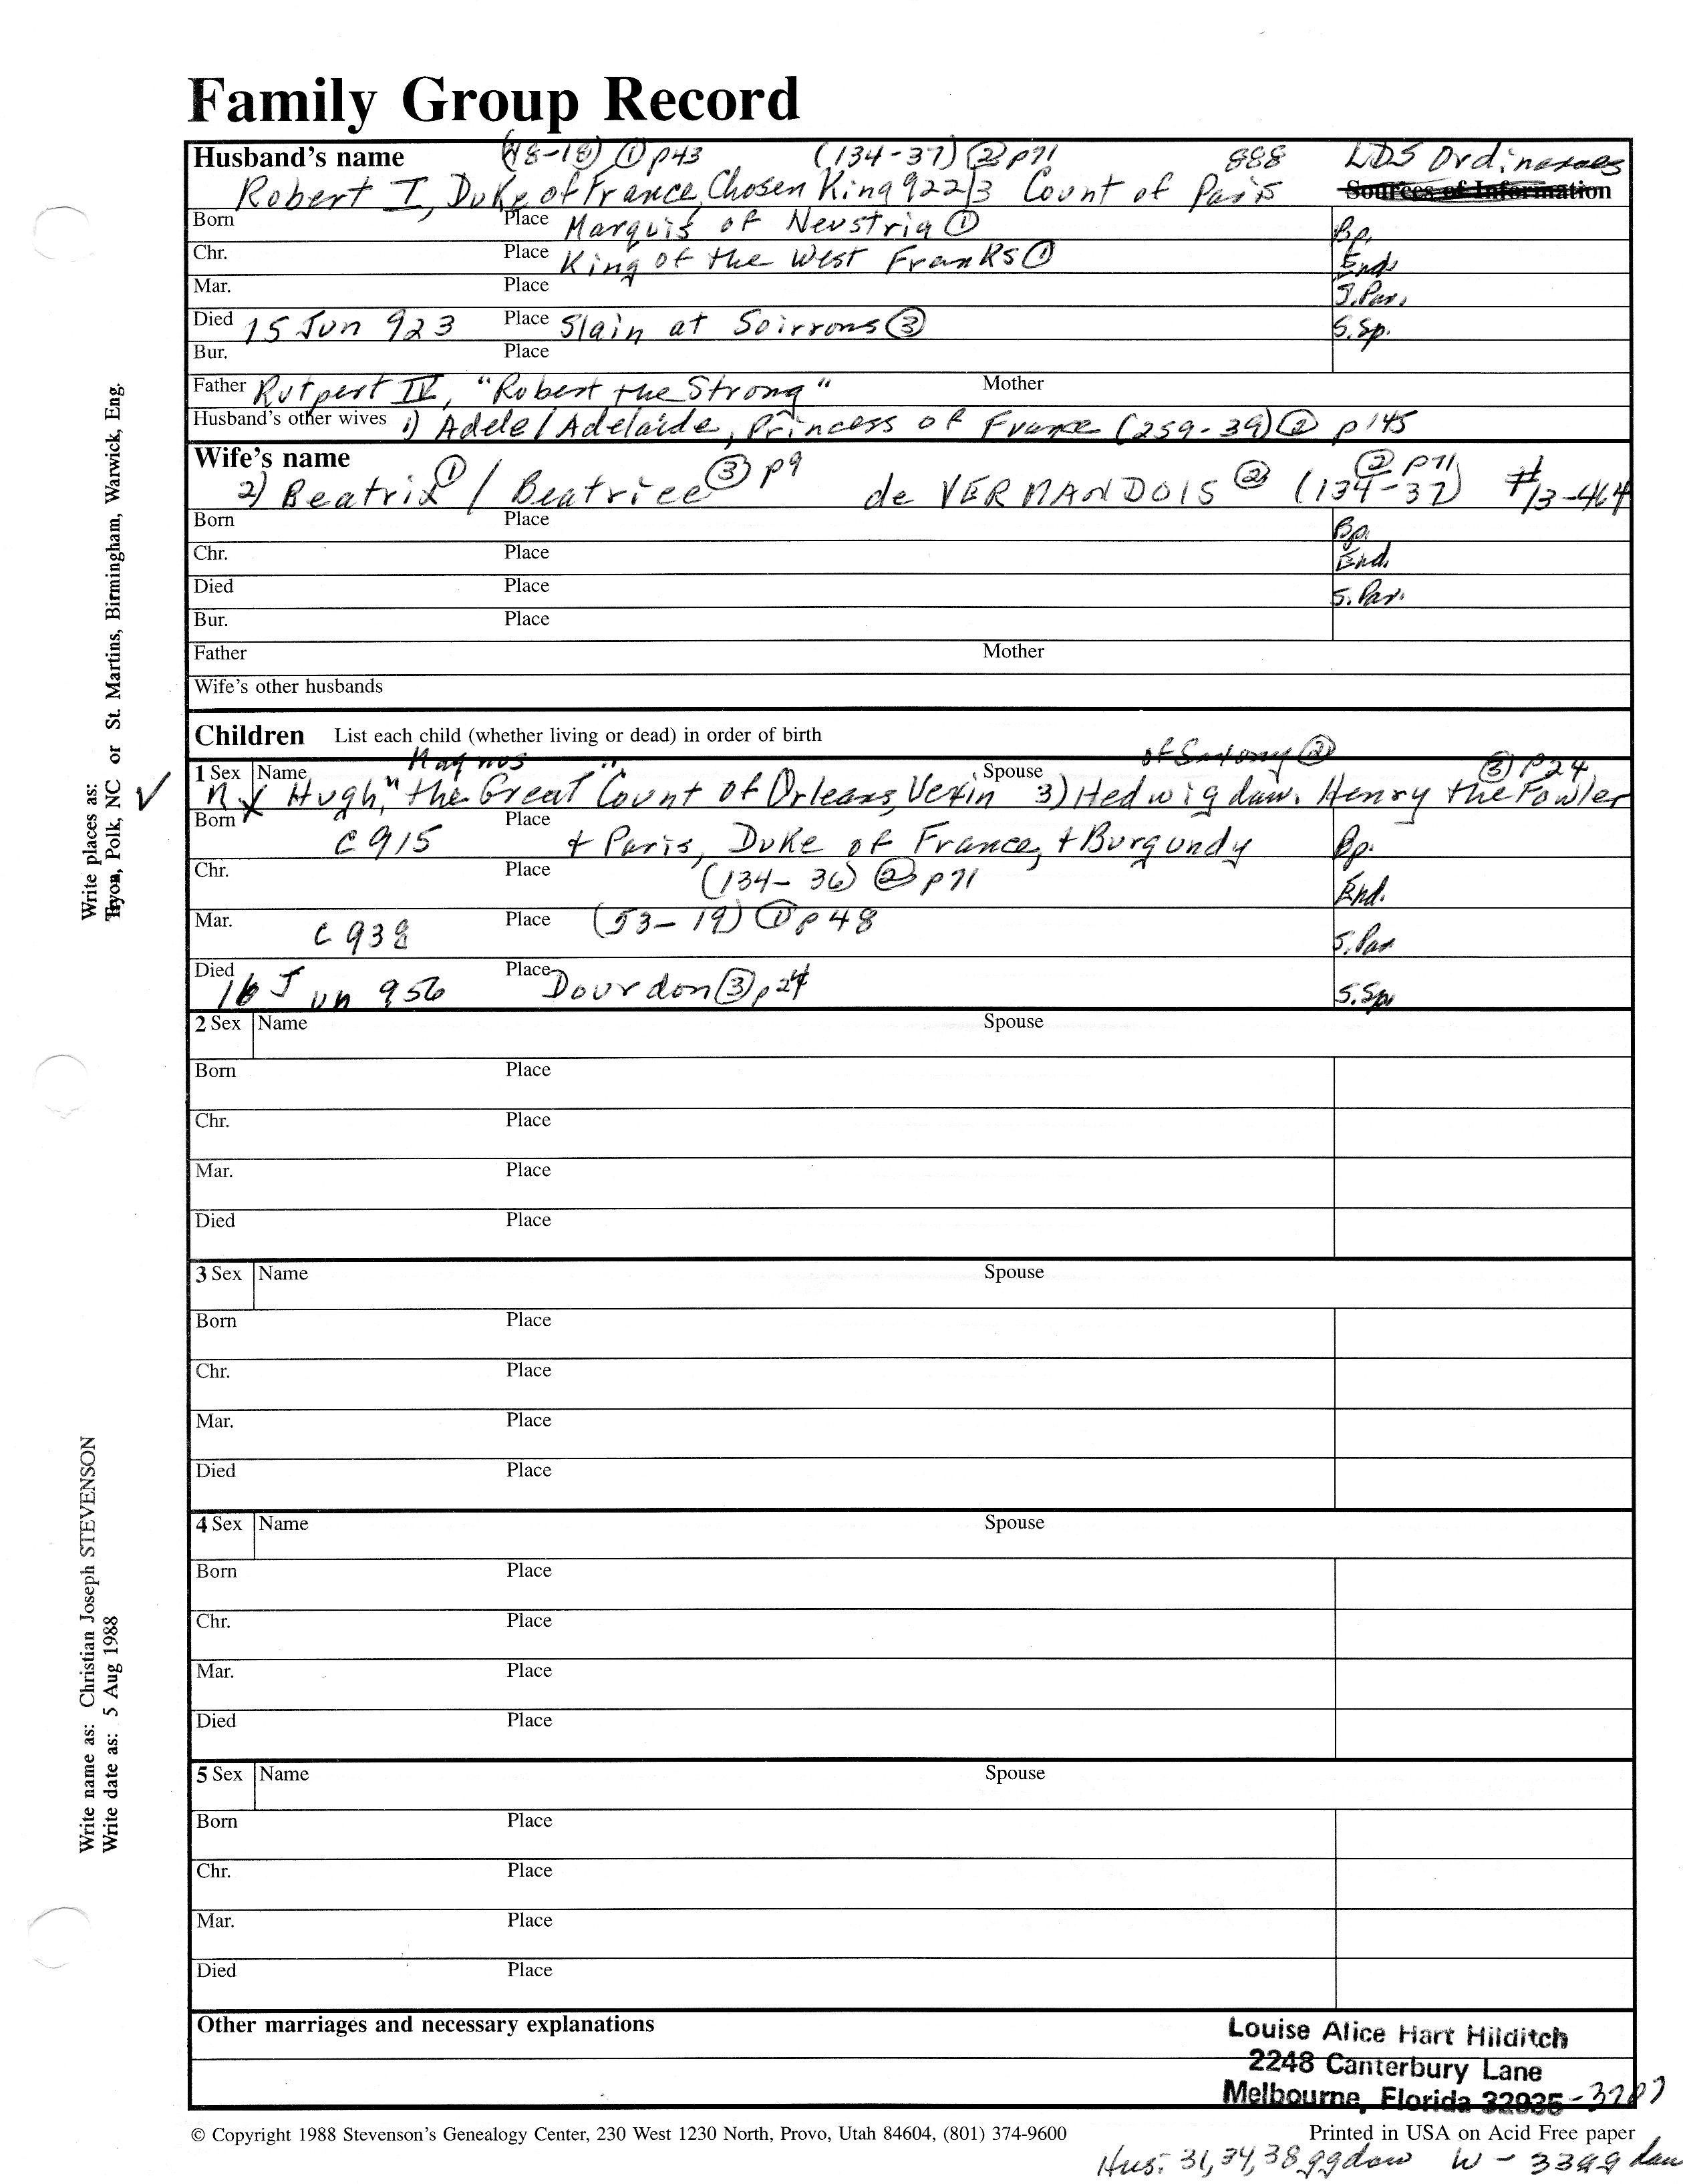 Family Group Record
Husband's name (48-18) ① p43 (134-37) ② p71 888 LDS Ordinances
Robert I, Duke of France, Chosen King 922/3 Count of Paris Sources of Information
Born Place Marquis of Neustria ① Bp.
Chr. Place King of the West Franks ① End.
Mar. Place S. Par.
Died 15 Jun 923 Place Slain at Soirrons ③ S. Sp.
Bur. Place
Father Rutpert IV, "Robert the Strong" Mother
Husband's other wives 1) Adele / Adelaide, Princess of France (259-39) ② p 145
Wife's name ② p71
2) Beatrix ① / Beatrice ③ p9 de VERMANDOIS ② (134-37) #13-464
Born Place Bp.
Chr. Place End.
Died Place S. Par.
Bur. Place
Father Mother
Wife's other husbands
Children List each child (whether living or dead) in order of birth
Magnus of Saxony ② ③ p24
1 Sex Name Spouse
M X Hugh, "the Great" Count of Orleans, Vexin 3) Hedwig dau. Henry the Fowler
Born c 915 Place + Paris, Duke of France, + Burgundy Bp.
Chr. Place (134-36) ② p71 End.
Mar. c 938 Place (53-19) ① p48 S. Par
Died 16 Jun 956 Place Dourdon ③ p24 S. Sp
2 Sex Name Spouse
Born Place
Chr. Place
Mar. Place
Died Place
3 Sex Name Spouse
Born Place
Chr. Place
Mar. Place
Died Place
4 Sex Name Spouse
Born Place
Chr. Place
Mar. Place
Died Place
5 Sex Name Spouse
Born Place
Chr. Place
Mar. Place
Died Place
Other marriages and necessary explanations
Louise Alice Hart Hilditch
2248 Canterbury Lane
Melbourne, Florida 32935-3787
© Copyright 1988 Stevenson's Genealogy Center, 230 West 1230 North, Provo, Utah 84604, (801) 374-9600 Printed in USA on Acid Free paper
Hus: 31,34,38 ggdau W - 33gg dau
Write places as:
Tryon, Polk, NC or St. Martins, Birmingham, Warwick, Eng.
Write name as: Christian Joseph STEVENSON
Write date as: 5 Aug 1988